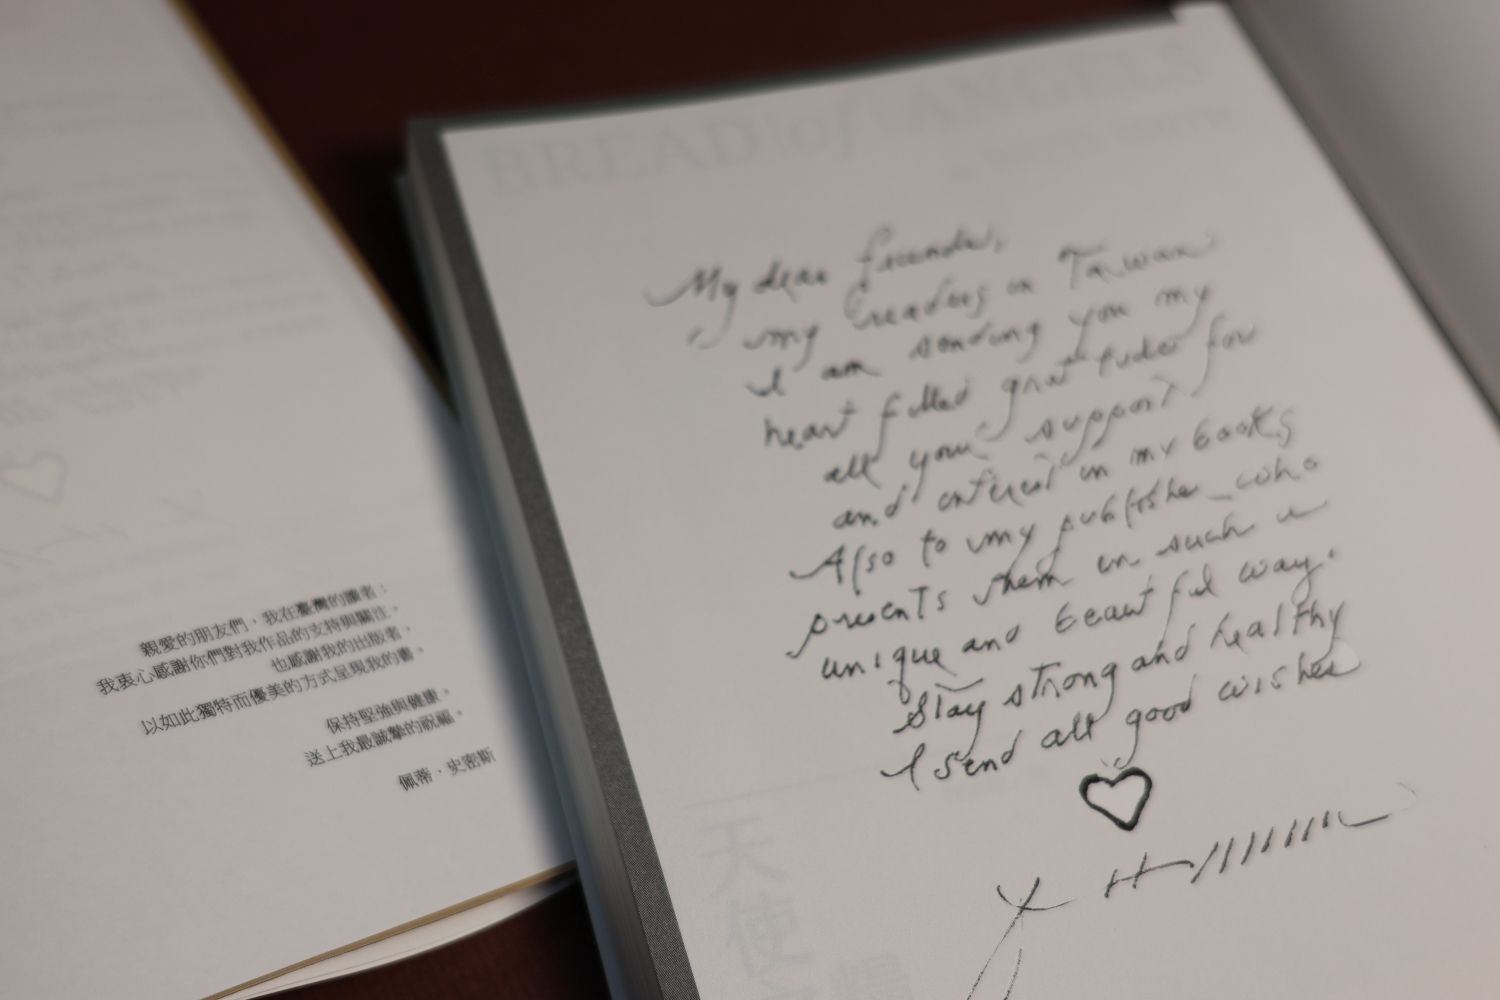 親愛的朋友們，我在臺灣的讀者：
我衷心感謝你們對我作品的支持與關注。
也感謝我的出版者，
以如此獨特而優美的方式呈現我的書。
保持堅強與健康。
送上我最誠摯的祝福。
佩蒂·史密斯
BREAD of ANGELS
My dear friends,
my readers in Taiwan
I am sending you my
heart filled gratitude for
all your support
and interest in my books
Also to my publisher who
presents them in such a
unique and beautiful way.
Stay strong and healthy
I send all good wishes
天使
糧